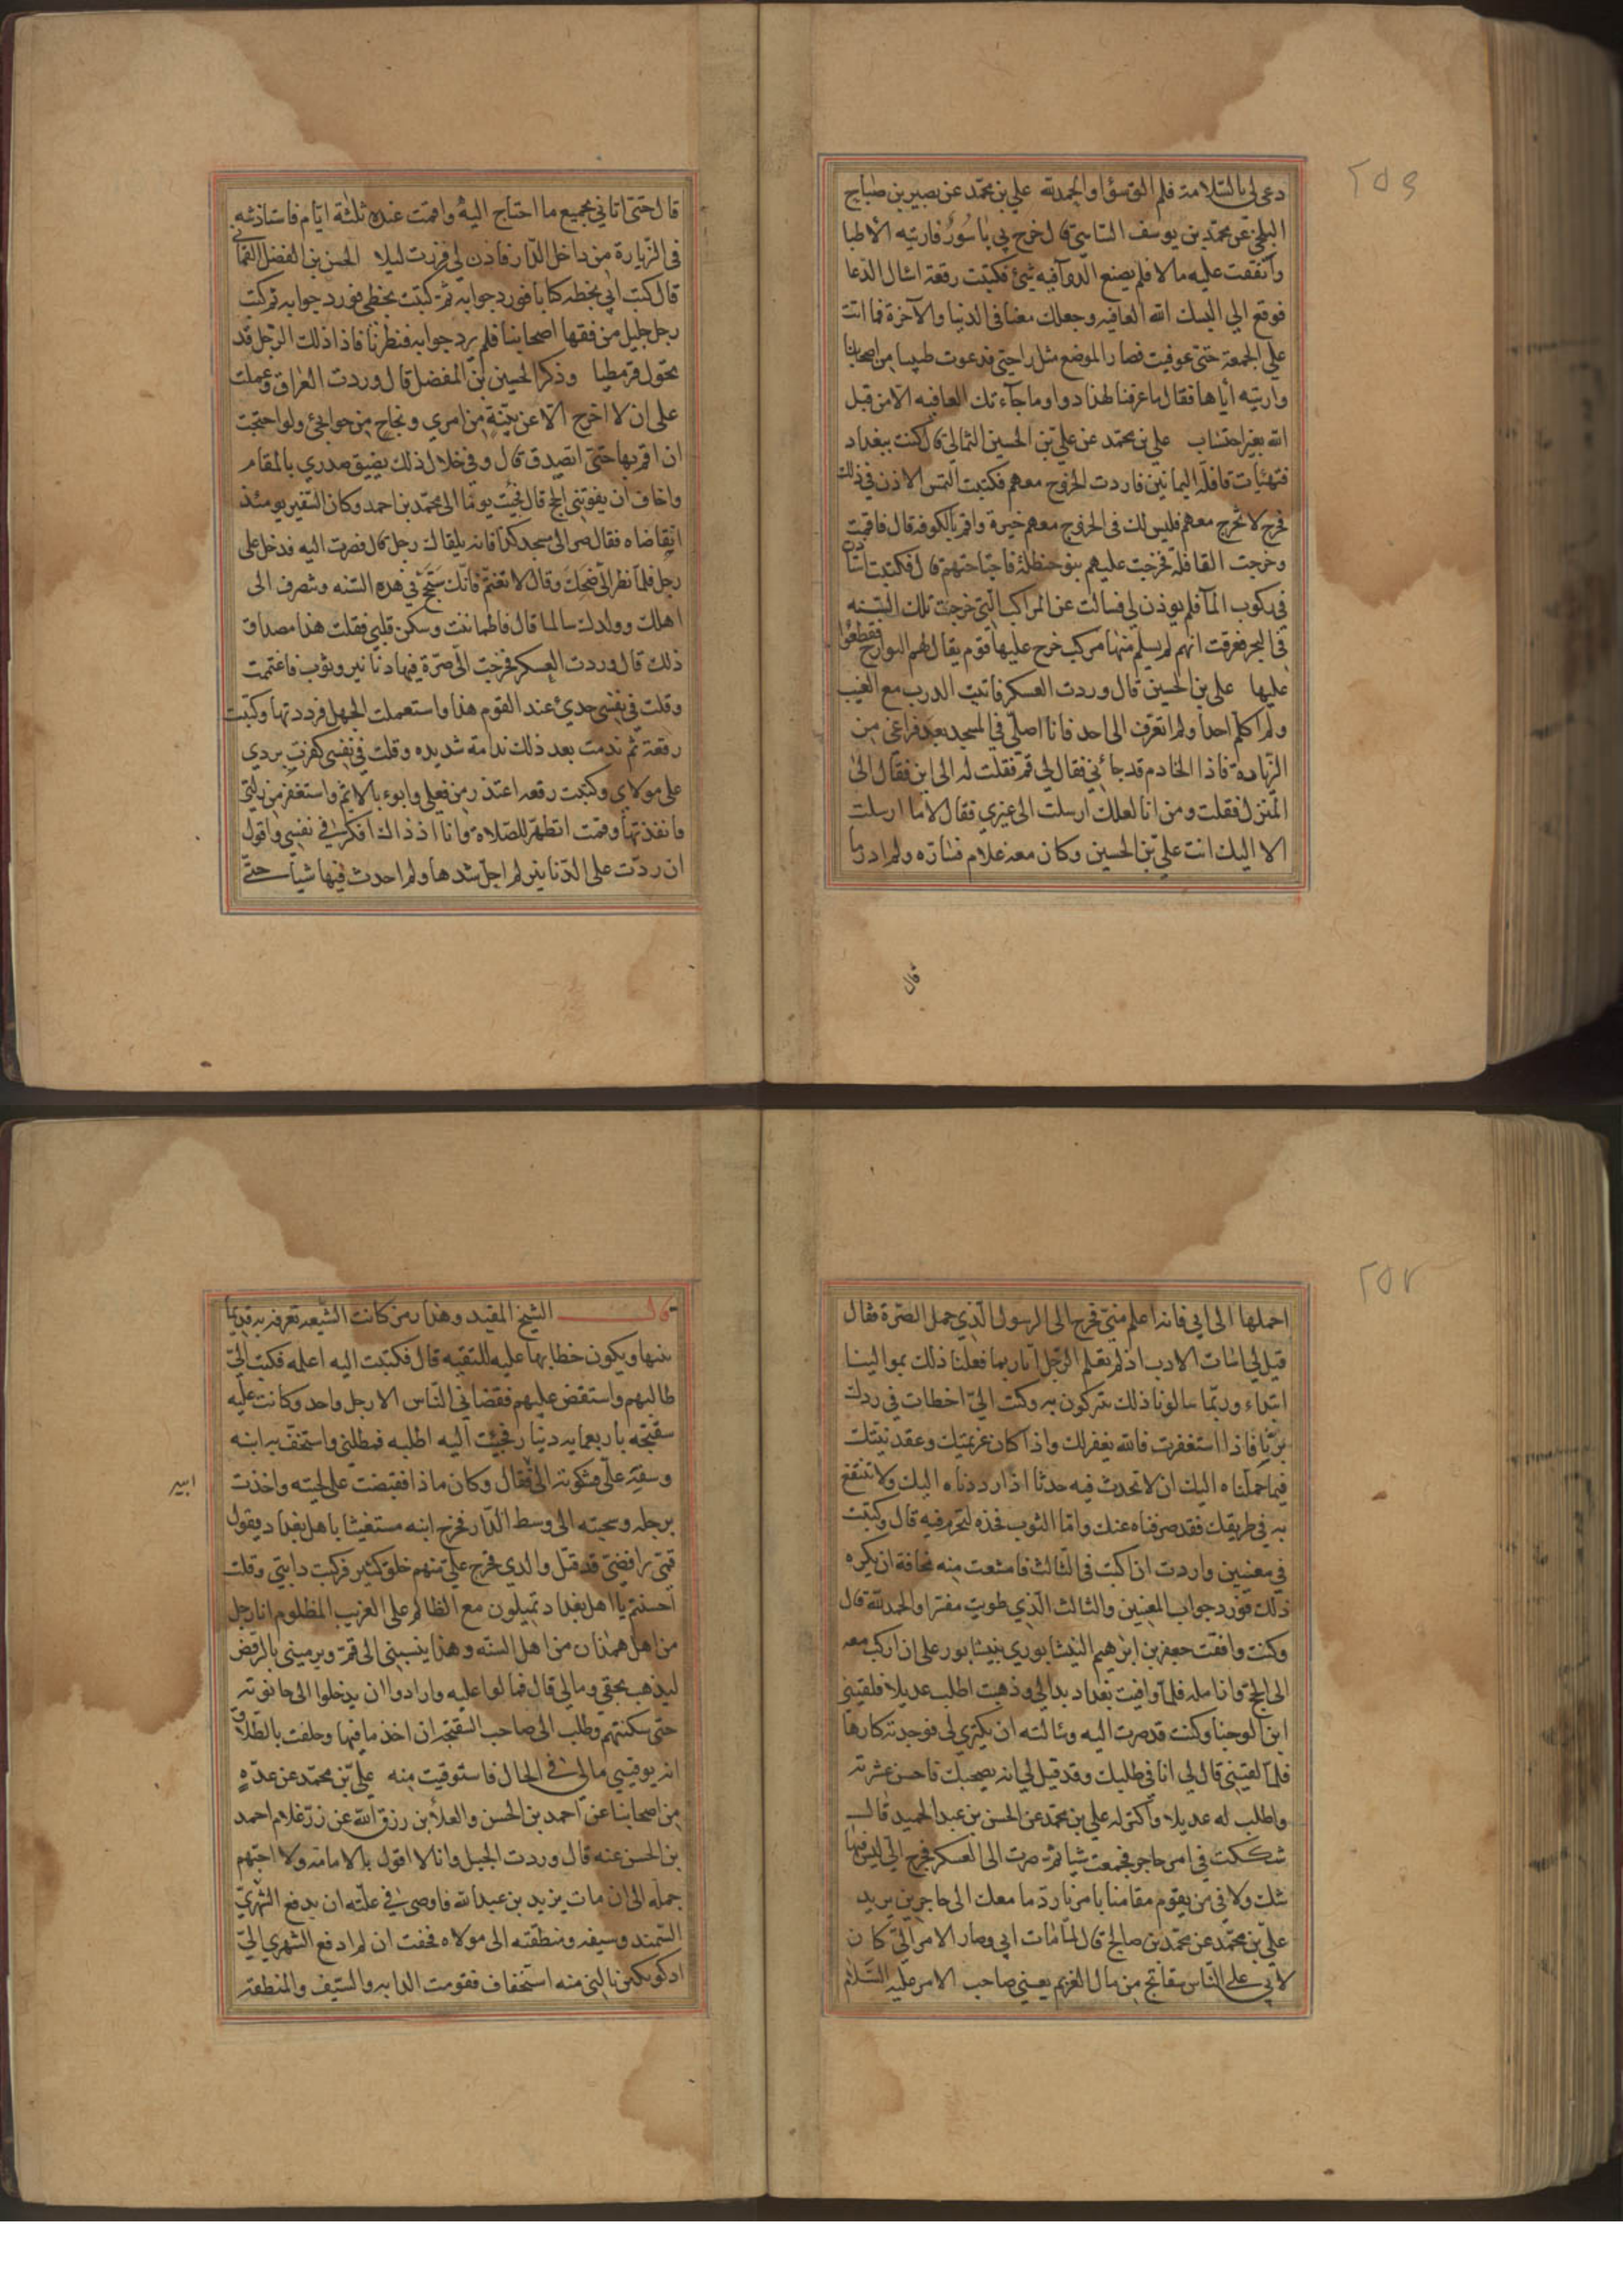 ٢٥٦
دعى لي بالسلامة فلم الق سؤا والحمد لله علي بن محمد عن نصير بن صباح
البلخي عن محمد بن يوسف الشاشي قال خرج بي باسور فاريته الاطبا
وانفقت عليه مالا فلم يصنع الدوآ فيه شئ فكتبت رقعة اسال الدعا
فوقع الي البسك الله العافيه وجعلك معنا في الدنيا والآخرة فما اتت
علي الجمعة حتى عوفيت فصار الموضع مثل راحتي فدعوت طبيبا من اصحابنا
واريته اياها فقال ما عرفنا لهذا دواء وما جآءتك العافيه الا من قبل
الله بغير احتساب علي بن محمد عن علي بن الحسين الثمالي قال كنت ببغداد
فتهيأت قافلة اليمانين فاردت الخروج معهم فكتبت التمس الاذن في ذلك
فخرج لا تخرج معهم فليس لك في الخروج معهم خيرة واقم بالكوفه قال فاقمت
وخرجت القافلة فخرجت عليهم بنو حنظلة فاجتاحتهم قال فكتبت استاذن
في ركوب المآ فلم يوذن لي فسالت عن المراكب التي خرجت تلك السنه
في البحر فعرفت انهم لم يسلم منها مركب خرج عليها قوم يقال لهم البوارح فقطعوا
عليها علي بن الحسين قال وردت العسكر فاتيت الدرب مع المغيب
ولم اكلم احدا ولم اتعرف الى احد فانا اصلي في المسجد بعد فراغي من
الزيارة فاذا الخادم قد جائني فقال لي قم فقلت له الى اين فقال الى
المنزل فقلت ومن انا لعلك ارسلت الى غيري فقال لا ما ارسلت
الا اليك انت علي بن الحسين وكان معه غلام فسارّه ولم ادر ما
قال
قال حتى اتاني بجميع ما احتاج اليه واقمت عنده ثلثة ايام فاستاذنته
في الزيارة من داخل الدار فاذن لي فزرت ليلا الحسن بن الفضل اليماني
قال كتب ابي بخطه كتابا فورد جوابه ثم كتبت بخطي فورد جوابه ثم كتب
رجل جليل من فقها اصحابنا فلم يرد جوابه فنظرنا فاذا ذلك الرجل قد
تحول قرمطيا وذكر الحسين بن المفضل قال وردت العراق وعملت
على ان لا اخرج الا عن بينة من امري ونجاح من حوائجي ولو احتجت
ان اقم بها حتى اتصدق قال وفي خلال ذلك يضيق صدري بالمقام
واخاف ان يفوتني الحج قال فجئت يوما الى محمد بن احمد وكان السفير يومئذ
اتقاضاه فقال صر الى مسجد كذا فانه يلقاك رجل قال فصرت اليه فدخل علي
رجل فلما نظر الي ضحك وقال لا تغتم فانك ستحج في هذه السنه وتنصرف الى
اهلك وولدك سالما قال فاطماننت وسكن قلبي فقلت هذا مصداق
ذلك قال وردت العسكر فخرجت الي صرة فيها دنانير وثوب فاغتممت
وقلت في نفسي جدي عند القوم هذا واستعملت الجهل فرددتها وكتبت
رقعة ثم ندمت بعد ذلك ندامة شديده وقلت في نفسي كفرت بردي
على مولاي وكتبت رقعه اعتذر من فعلي وابوء بالاثم واستغفر من زلتي
وانفذتها وقمت اتطهر للصلاة وانا اذ ذاك افكر في نفسي واقول
ان ردت علي الدنانير لم احل شدها ولم احدث فيها شيأ حتى
٢٥٧
احملها الى ابي فانه اعلم مني فخرج الى الرسول الذي حمل الصرة فقال
قيل لي اسات الادب اذ لم تعلم الرجل انا ربما فعلنا ذلك بموالينا
ابتداء وربما سالونا ذلك يتبركون به وكتب الي اخطات في ردك
برنا فاذا استغفرت فالله يغفر لك واذا كان عزيمتك وعقد نيتك
فيما حملناه اليك ان لا تحدث فيه حدثا اذا رددناه اليك ولا تنتفع
به في طريقك فقد صرفناه عنك واما الثوب فخذه لتحرم فيه قال وكتبت
في معنيين واردت ان اكتب في الثالث فامتنعت منه مخافة ان يكره
ذلك فورد جواب المعنيين والثالث الذي طويت مفسرا والحمد لله قال
وكنت وافقت جعفر بن ابرهيم النيشابوري بنيشابور على ان اركب معه
الى الحج وازامله فلما وافيت بغداد بدا لي وذهبت اطلب عديلا فلقيني
ابن الوجنا وكنت قد صرت اليه وسالته ان يكتري لي فوجدته كارها
فلما لقيني قال لي انا في طلبك وقد قيل لي انه يصحبك فاحسن عشرته
واطلب له عديلا واكتر له علي بن محمد عن الحسن بن عبد الحميد قال
شككت في امر حاجز فجمعت شيا ثم صرت الى العسكر فخرج الي ليس فينا
شك ولا في من يقوم مقامنا بامرنا رد ما معك الى حاجز بن يزيد
علي بن محمد عن محمد بن صالح قال لما مات ابي وصار الامر الي كان
لابي على الناس سفاتج من مال الغريم يعني صاحب الامر عليه السلام
قال الشيخ المفيد وهذا رمز كانت الشيعه تعرفه قديما
بينها ويكون خطابها عليه للتقيه قال فكتبت اليه اعلمه فكتب الي
طالبهم واستقض عليهم فقضاني الناس الا رجل واحد وكانت عليه
سفتجه باربعمايه دينار فجئت اليه اطلبه فمطلني واستخف بي ابنه
وسفه علي فشكوته الى فقال وكان ماذا فقبضت على لحيته واخذت
ابيه
برجله وسحبته الى وسط الدار فخرج ابنه مستغيثا باهل بغداد يقول
قمي رافضي قد قتل والدي فخرج علي منهم خلق كثير فركبت دابتي وقلت
احسنتم يا اهل بغداد تميلون مع الظالم على الغريب المظلوم انا رجل
من اهل همذان من اهل السنه وهذا ينسبني الى قم ويرميني بالرفض
ليذهب بحقي ومالي قال فمالوا عليه وارادوا ان يدخلوا الى حانوته
حتى سكنتهم وطلب الى صاحب السفتجه ان اخذ ما فيها وحلف بالطلاق
انه يوفيني مالي في الحال فاستوفيت منه علي بن محمد عن عدة
من اصحابنا عن احمد بن الحسن والعلا بن رزق الله عن بدر غلام احمد
بن الحسن عنه قال وردت الجبل وانا لا اقول بالامامه ولا احبهم
جمله الى ان مات يزيد بن عبدالله فاوصى في علته ان يدفع الشهري
السمند وسيفه ومنطقته الى مولاه فخفت ان لم ادفع الشهري الى
اذكوتكين نالني منه استخفاف فقومت الدابه والسيف والمنطقه